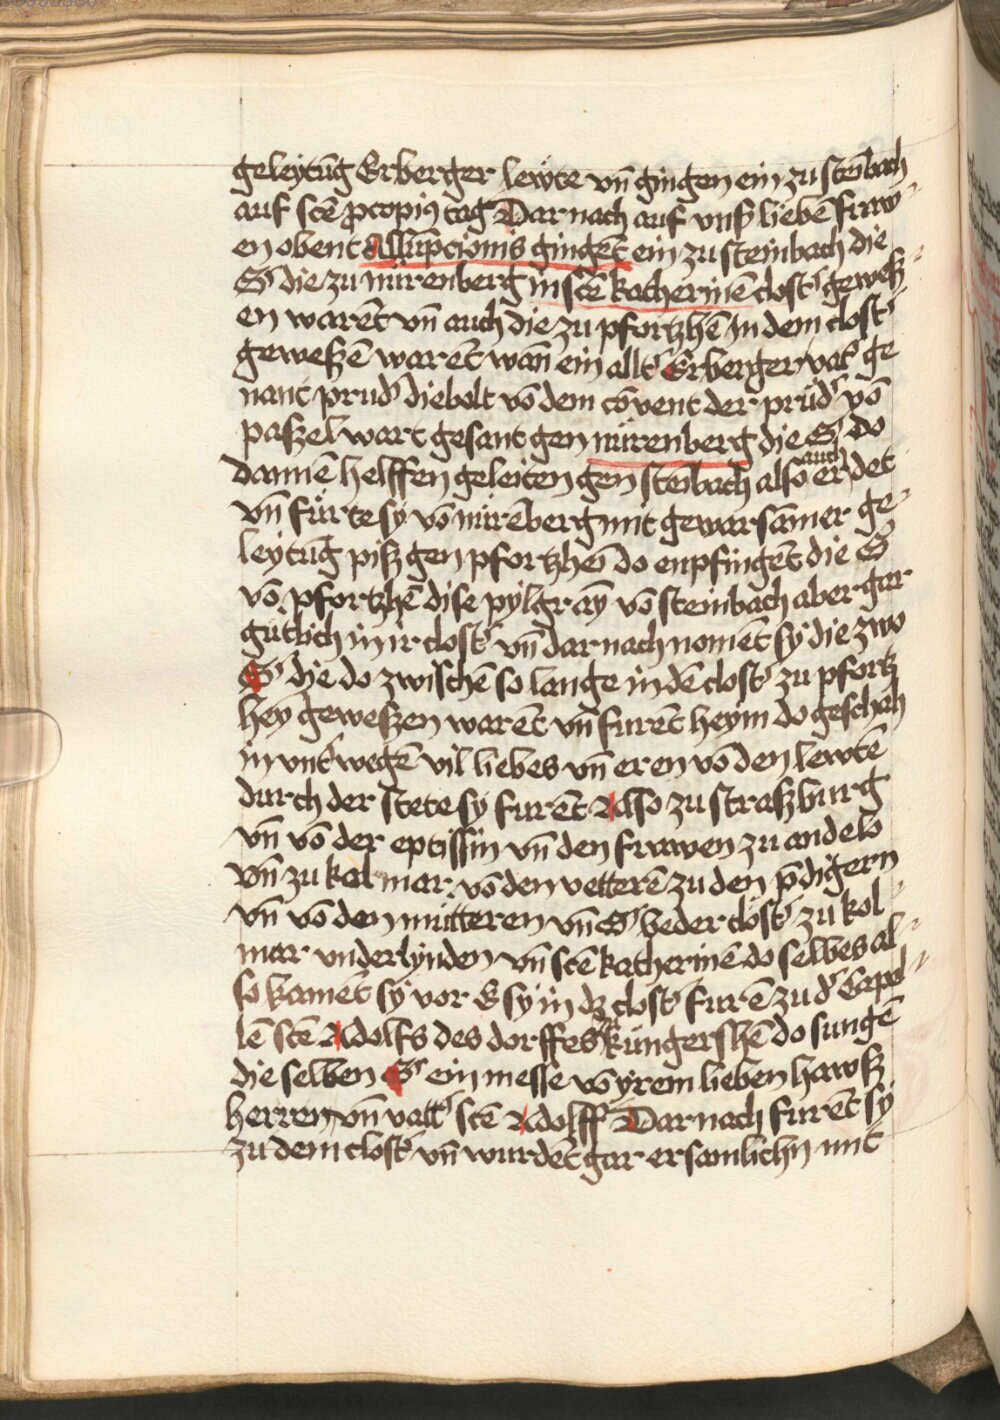 geleytūg Erberger lewte vn̄ gingen ein zu steībach
auf scē pcopiꝰ tag Darnach auf vnß liebē fraw
en obent Assūpcionis gingēt ein zu steinbach die
S' die zu nürenberg in scē katherinē clost' geweß
en warēt vn̄ auch die zu pfortzhē In dem clost'
geweßē warēt wan̄ ein allt' Erberger vat' ge
nant prud' diebolt vō dem cōvent der prüd' vō
paßel wart gesant gen nürenberg die S' do
dannē helffen geleiten gen steībach also auch er det
vn̄ fürte sy vō nürēberg mit gewarsāmer ge
leytūg piß gen pfortzhē do enpfingēt die S'
vō pfortzhē dise pylgrāy vō steinbach aber gar
gütlich in ir clost' vn̄ darnach nomēt sy die zwo
S' die do zwischē so lange in dē clost' zu pfortz
hey geweßen warēt vn̄ furēt heym do geschah
in vnt'wegē vil liebes vn̄ eren vō den lewtē
durch der stete sy furēt Also zu straßburg
vn̄ vō der eptissin vn̄ den frawen zu andelo
vn̄ zu kolmar vō den vetterē zu den p̄digern
vn̄ vō den mütteren vn̄ S' beder clöst' zu kol
mar vnderlynden vn̄ scē katherinē do selbes al
so kamēt sy vor E sy in dz clost' furē zu d' Capel
lē scē Adolfs des dorffes küngershē do sungē
die selben S' ein messe vō yrem lieben hawß
herren vn̄ vatt' scē Adolff Darnach furēt sy
zu dem clost' vn̄ wurdēt gar ersamlichn mit